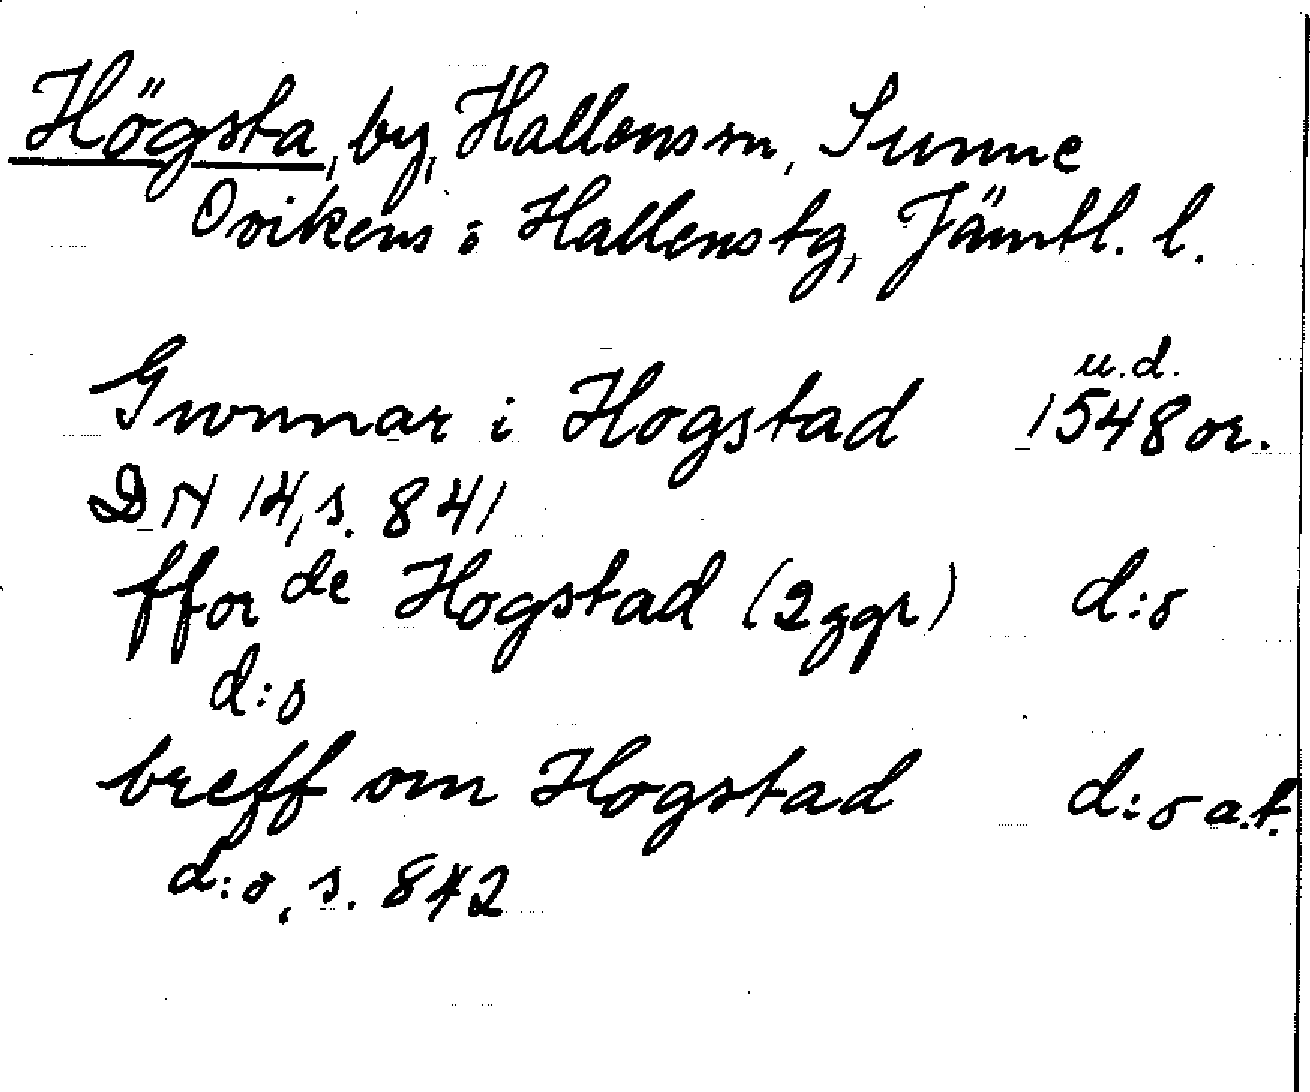 Högsta, by, Hallens sn, Sunne
Ovikens o Hallens tg, Jämtl. l.
u.d.
Gunnar i Hogstad 1548 or.
DN 14, s. 841
ffor de Hogstad (2 ggr) d:o
d:o
breff om Hogstad d:o a.t.
d:o, s. 842